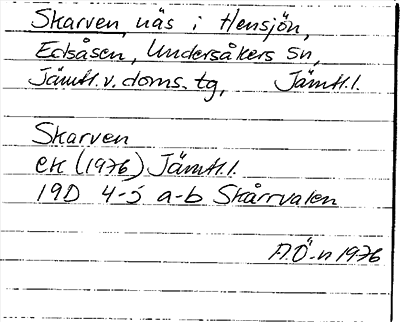 Skarven, näs i Hensjön,
Edsåsen, Undersåkers sn,
Jämtl.v.doms.tg, Jämtl.l.
Skarven
ek (1976) Jämtl.l.
19D 4-5 a-b Skårrvalen
A.Ö-n 1976